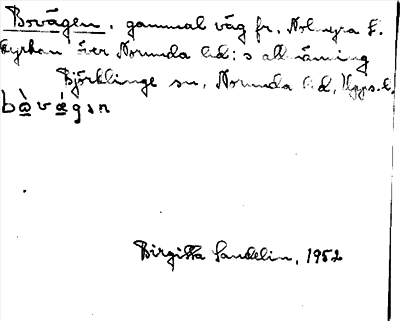 Bovägen, gammal väg fr. Nolmyra t.
kyrkan över Norunda hd:s allmänning
Björklinge sn, Norunda hd, Upps. l.
bàvágən
Birgitta Sandelin, 1952